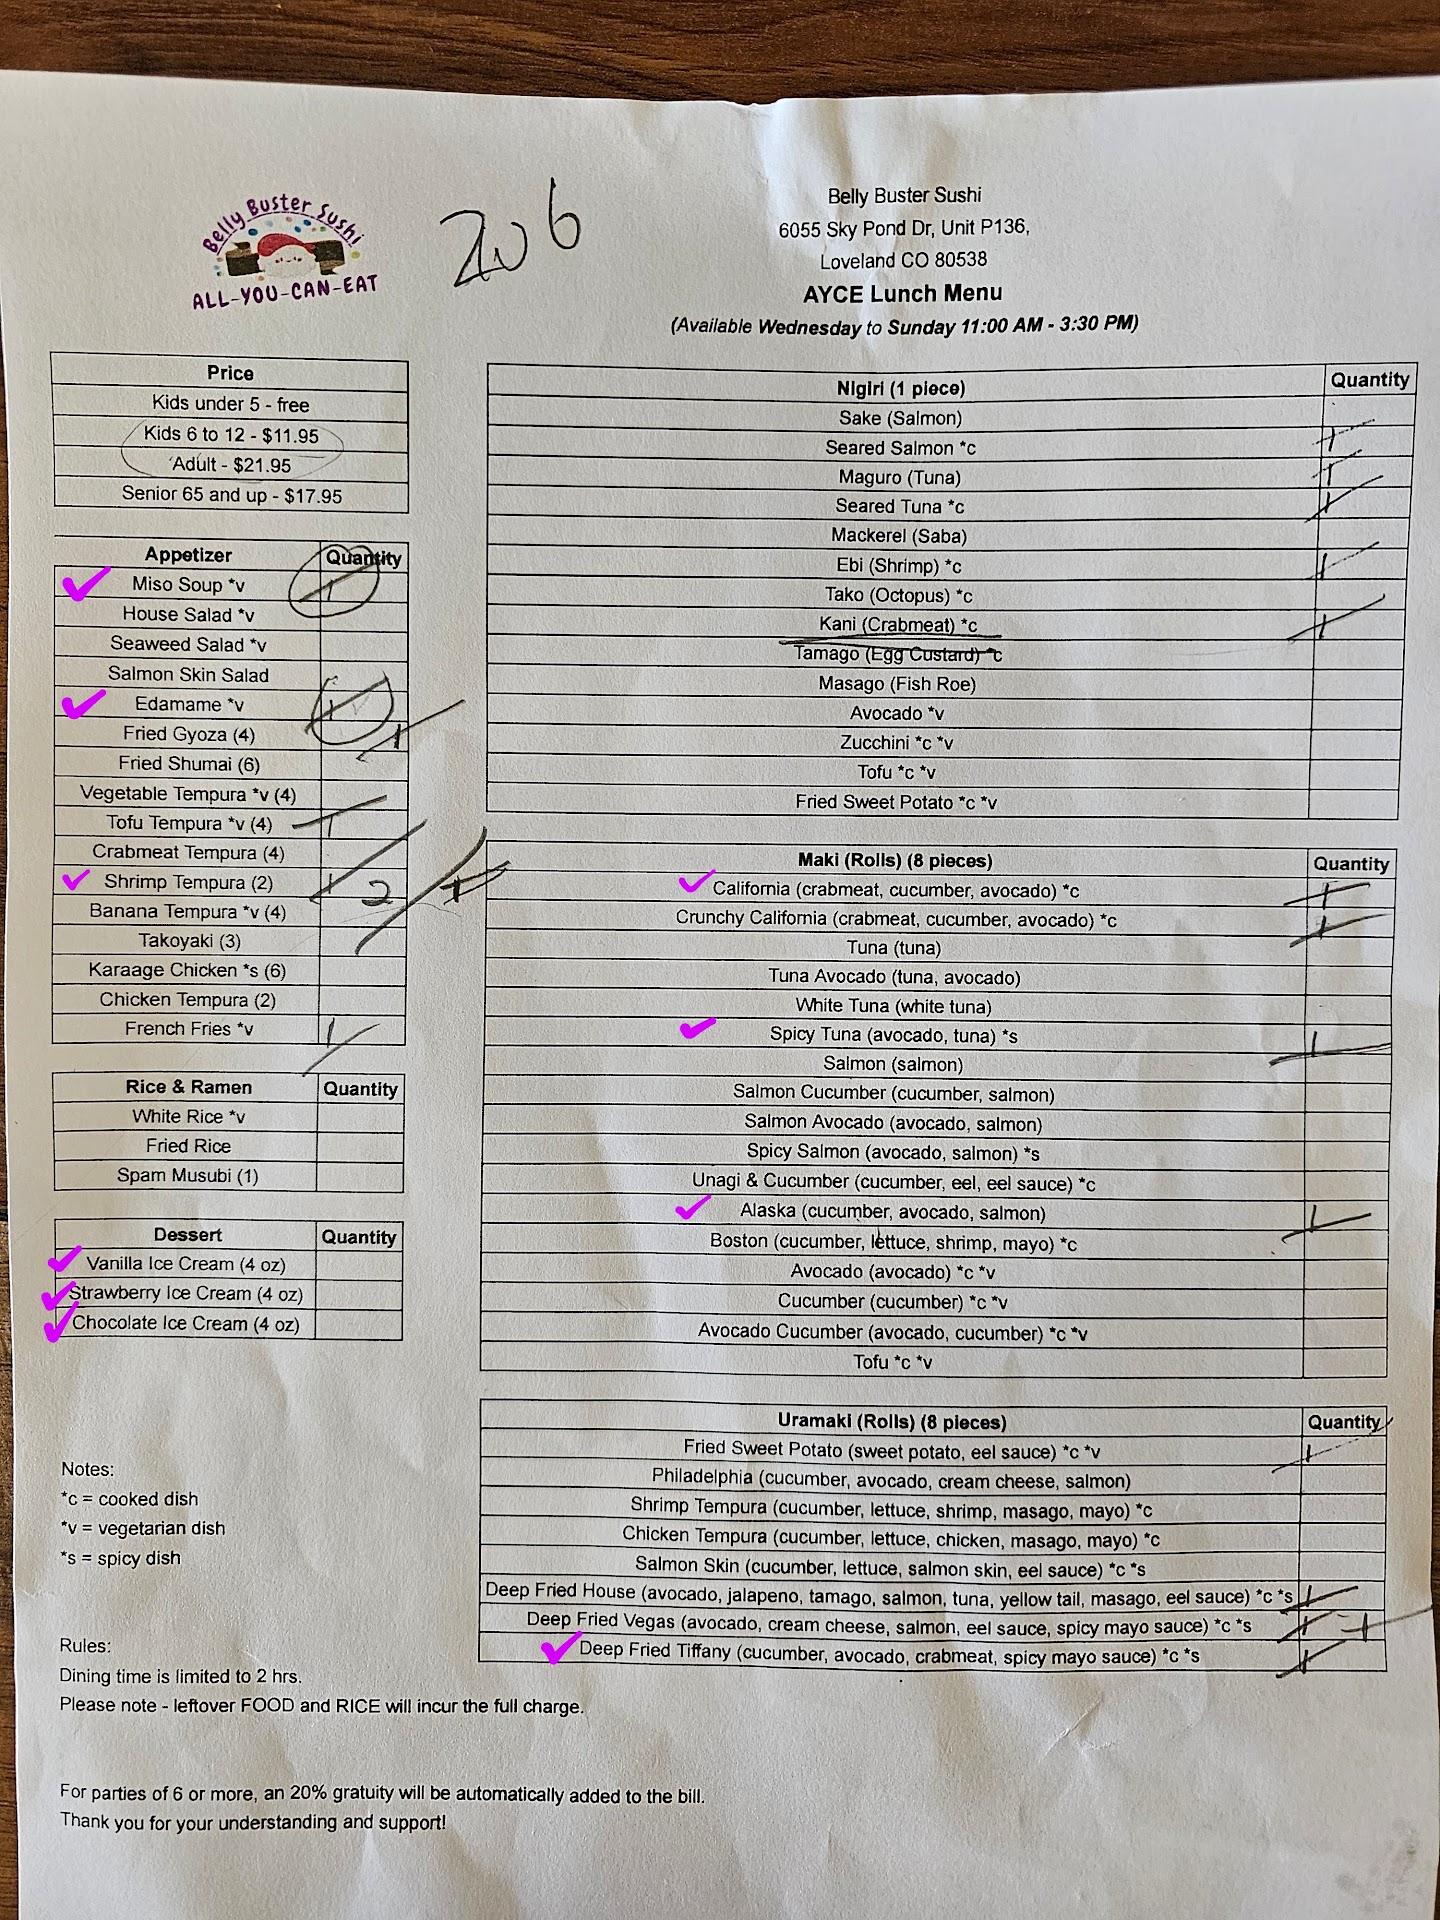 Belly Buster Sushi
ALL-YOU-CAN-EAT
206
Belly Buster Sushi
6055 Sky Pond Dr, Unit P136,
Loveland CO 80538
AYCE Lunch Menu
(Available Wednesday to Sunday 11:00 AM - 3:30 PM)
Price
Kids under 5 - free
Kids 6 to 12 - $11.95
Adult - $21.95
Senior 65 and up - $17.95
Appetizer Quantity
Miso Soup *v 1
House Salad *v
Seaweed Salad *v
Salmon Skin Salad
Edamame *v 1
Fried Gyoza (4) 1
Fried Shumai (6)
Vegetable Tempura *v (4)
Tofu Tempura *v (4) 1
Crabmeat Tempura (4)
Shrimp Tempura (2) 1 2 1
Banana Tempura *v (4)
Takoyaki (3)
Karaage Chicken *s (6)
Chicken Tempura (2)
French Fries *v 1
Rice & Ramen Quantity
White Rice *v
Fried Rice
Spam Musubi (1)
Dessert Quantity
Vanilla Ice Cream (4 oz)
Strawberry Ice Cream (4 oz)
Chocolate Ice Cream (4 oz)
Notes:
*c = cooked dish
*v = vegetarian dish
*s = spicy dish
Rules:
Dining time is limited to 2 hrs.
Please note - leftover FOOD and RICE will incur the full charge.
For parties of 6 or more, an 20% gratuity will be automatically added to the bill.
Thank you for your understanding and support!
Nigiri (1 piece) Quantity
Sake (Salmon)
Seared Salmon *c 1
Maguro (Tuna) 1
Seared Tuna *c 1
Mackerel (Saba)
Ebi (Shrimp) *c 1
Tako (Octopus) *c
Kani (Crabmeat) *c 1
Tamago (Egg Custard) *c
Masago (Fish Roe)
Avocado *v
Zucchini *c *v
Tofu *c *v
Fried Sweet Potato *c *v
Maki (Rolls) (8 pieces) Quantity
California (crabmeat, cucumber, avocado) *c 1
Crunchy California (crabmeat, cucumber, avocado) *c 1
Tuna (tuna)
Tuna Avocado (tuna, avocado)
White Tuna (white tuna)
Spicy Tuna (avocado, tuna) *s 1
Salmon (salmon)
Salmon Cucumber (cucumber, salmon)
Salmon Avocado (avocado, salmon)
Spicy Salmon (avocado, salmon) *s
Unagi & Cucumber (cucumber, eel, eel sauce) *c
Alaska (cucumber, avocado, salmon) 1
Boston (cucumber, lettuce, shrimp, mayo) *c
Avocado (avocado) *c *v
Cucumber (cucumber) *c *v
Avocado Cucumber (avocado, cucumber) *c *v
Tofu *c *v
Uramaki (Rolls) (8 pieces) Quantity
Fried Sweet Potato (sweet potato, eel sauce) *c *v 1
Philadelphia (cucumber, avocado, cream cheese, salmon)
Shrimp Tempura (cucumber, lettuce, shrimp, masago, mayo) *c
Chicken Tempura (cucumber, lettuce, chicken, masago, mayo) *c
Salmon Skin (cucumber, lettuce, salmon skin, eel sauce) *c *s
Deep Fried House (avocado, jalapeno, tamago, salmon, tuna, yellow tail, masago, eel sauce) *c *s 1
Deep Fried Vegas (avocado, cream cheese, salmon, eel sauce, spicy mayo sauce) *c *s 1 1
Deep Fried Tiffany (cucumber, avocado, crabmeat, spicy mayo sauce) *c *s 1